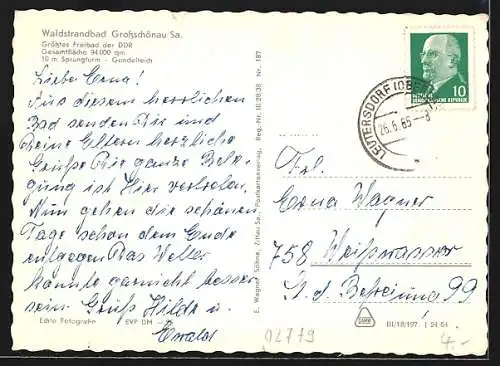 Waldstrandbad Großschönau Sa.
Größtes Freibad der DDR
Gesamtfläche 94 000 qm
10 m Sprungturm - Gondelteich
Liebe Erna!
Aus diesem herrlichen
Bad senden Dir und
Deine Eltern herzliche
Grüße Die ganze Bele-
gung ist Hier vertreten.
Nun gehen die schönen
Tage schon dem Ende
entgegen Das Wetter
könnte garnicht besser
sein. Gruß Hilde u.
Ewald
Echte Fotografie EVP DM
E. Wagner Söhne, Zittau Sa., Postkartenverlag, Reg.-Nr. III/28/38 Nr. 187
LEUTERSDORF (OBE
26.6.65-8
DEUTSCHE DEMOKRATISCHE REPUBLIK
10
Frl.
Erna Wagner
758 Weißwasser
Str. d. Befreiung 99
III/18/197 1 24 64
02779
4.-